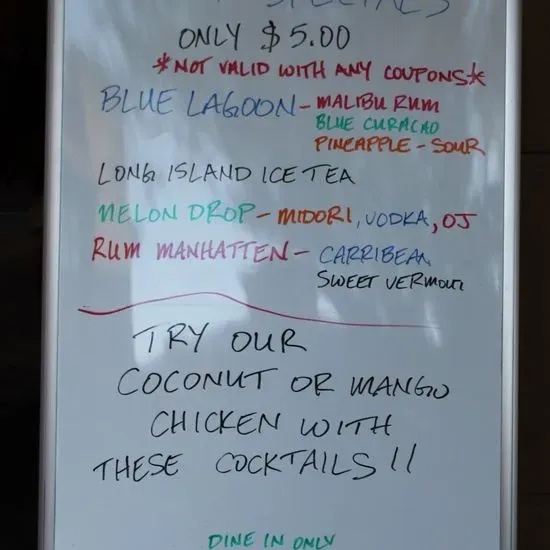 SPECIALS
ONLY $5.00
*NOT VALID WITH ANY COUPONS*
BLUE LAGOON - MALIBU RUM
BLUE CURACAO
PINEAPPLE - SOUR
LONG ISLAND ICE TEA
MELON DROP - MIDORI, VODKA, OJ
RUM MANHATTEN - CARRIBEAN
SWEET VERMOUT
TRY OUR
COCONUT OR MANGO
CHICKEN WITH
THESE COCKTAILS!!
DINE IN ONLY